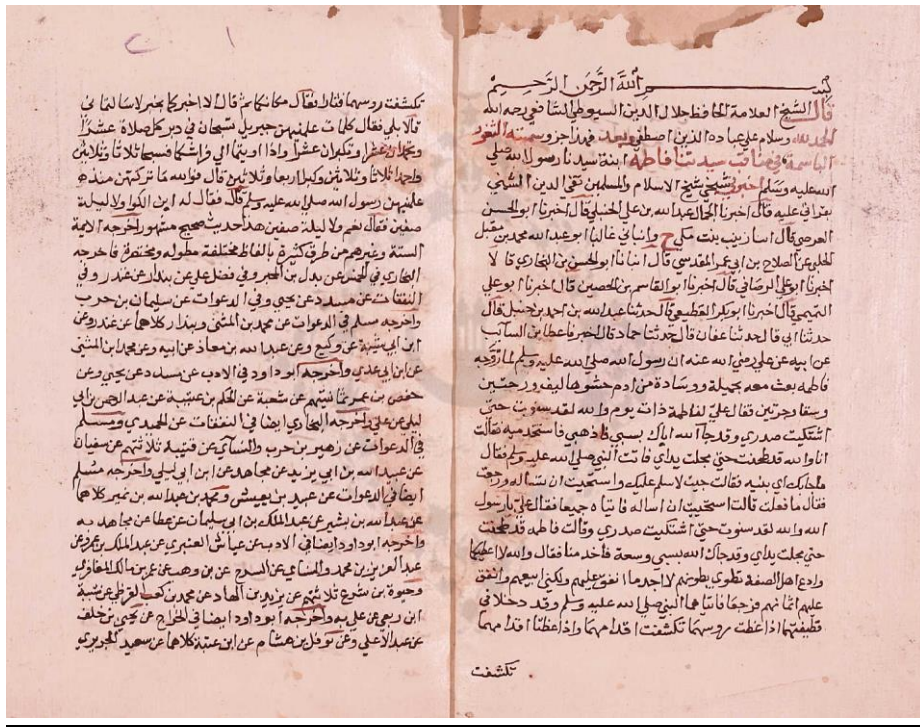 بسم الله الرحمن الرحيم
قال الشيخ العلامة الحافظ جلال الدين السيوطي الشافعي رحمه الله
الحمد لله وسلام على عباده الذين اصطفى وبعد فهذا جزء وسميته الثغور
الباسمة في مناقب سيدتنا فاطمه ابنة سيدنا رسول الله صلى
الله عليه وسلم اخبرني شيخي شيخ الاسلام والمسلمين تقي الدين الشمني
بقراتي عليه قال اخبرنا الجمال عبد الله بن علي الحنبلي قال اخبرنا ابو الحسن
العرضي قال اسا زينب بنت مكي ح وانباني غالبا ابو عبد الله محمد بن مقبل
الحلبي عن الصلاح بن ابي عمر المقدسي قال انبانا ابو الحسن بن البخاري قا لا
اخبرنا ابو علي الرصافي قال اخبرنا ابو القاسم بن الحصين قال اخبرنا ابو علي
التميمي قال اخبرنا ابو بكر القطيعي قال حدثنا عبد الله بن احمد بن حنبل قال
حدثنا ابي قا ل حدثنا عفان قال حدثنا حماد قال اخبر فا عطا بن السايب
عن ابيه عن علي رضي الله عنه ان رسول الله صلى الله عليه وسلم لما زوجه
فاطمه بعث معه بخميلة ووسادة من ادم حشوها ليف ورحيين
وسقا وجرتين فقال علي لفاطمة ذات يوم والله لقد سنوت حتى
اشتكيت صدري وقد جا الله اباك بسبي فاذهبي فاستخدميه فقالت
انا والله قد طحنت حتى مجلت يداي فاتت النبي صلى الله عليه ولم فقال
ما جابك اي بنيه فقالت جيت لاسلم عليك واستحيت ان تساله ورجعت
فقال ما فعلت قالت استحييت ان اساله فاتياه جميعا فقال علي يارسول
الله والله لقد سنوت حتى اشتكيت صدري وقالت فاطمه قد طحنت
حتى مجلت يداي وقد جاك الله بسبي وسعة فاخدمنا فقال والله لا اعطيكما
وادع اهل الصفة تطوى بطونهم لا اجد ما انفق عليهم ولكني ابيعهم وانفق
عليهم اثمانهم فرجعا فاتاهما النبي صلى الله عليه وسلم وقد دخلا في
قطيفتهما اذا غطت روسهما تكشفت اقدامهما واذا غطتا اقدامهما
تكشفت
تكشفت روسهما فثارا فقال مكانكما ثم قال الا اخبركما بخير لا سالتماني
قالا بلى فقال كلمات علمنيهن جبريل تسبحان في دبر كل صلاة عشرا
وتحمدان عشرا وتكبران عشرا واذا اويتما الى فراشكما فسبحا ثلاثا وثلاثين
واحمدا ثلاثا وثلاثين وكبرا اربعا وثلاثين قال فوالله ما تركتهن منذ
علمنيهن رسول الله صلى الله عليه وسلم قال فقال له ابن الكوا ولا ليلة
صفين فقال نعم ولا ليلة صفين هذا حديث صحيح مشهور اخرجه الايمة
الستة وغيرهم من طرق كثيرة بالفاظ مختلفة مطوله ومختصرة فاخرجه
البخاري في الخمس عن بدل بن المحبر وفي فضل علي عن بندار عن غندر وفي
النفقات عن مسدد عن يحيى وفي الدعوات عن سليمان بن حرب
واخرجه مسلم في الدعوات عن محمد بن المثنى وبندار كلاهما عن غندر وعن
ابن ابي شيبة عن وكيع وعن عبد الله بن معاذ عن ابيه وعن محمد ابن المثنى
عن ابن ابي عدي واخرجه ابو داود في الادب عن مسدد عن يحيى وعن
حفص بن عمر ثمانيتهم عن شعبة عن الحكم بن عتيبة عن عبد الرحمن بن ابي
ليلى عن علي واخرجه البخاري ايضا في النفقات عن الحميدي ومسلم
في الدعوات عن زهير بن حرب والنساي عن قتيبة ثلاثتهم عن سفيان
عن عبيد الله بن ابي يزيد عن مجاهد عن ابن ابي ليلى واخرجه مسلم
ايضا في الدعوات عن عبيد بن يعيش ومحمد بن عبد الله بن نمير كلاهما
عن عبد الله بن بشير عن عبد الملك بن ابي سليمان عن عطا عن مجاهد به
واخرجه ابو داود ايضا في الادب عن عباس العنبري عن عبد الملك بن عمرو عن
عبد العزيز بن محمد والنساي عن السرح عن بن وهب عن عمر بن مالك المعافري
وحيوة بن شريح ثلاثتهم عن يزيد بن الهاد عن محمد بن كعب القرظي عن شبة
ابن ربعي عن علي به واخرجه ابو داود ايضا في الخراج عن يحيى بن خلف
عن عبد الاعلى وعن مومل بن هشام عن ابن عتبة كلاهما عن سعيد الجريري